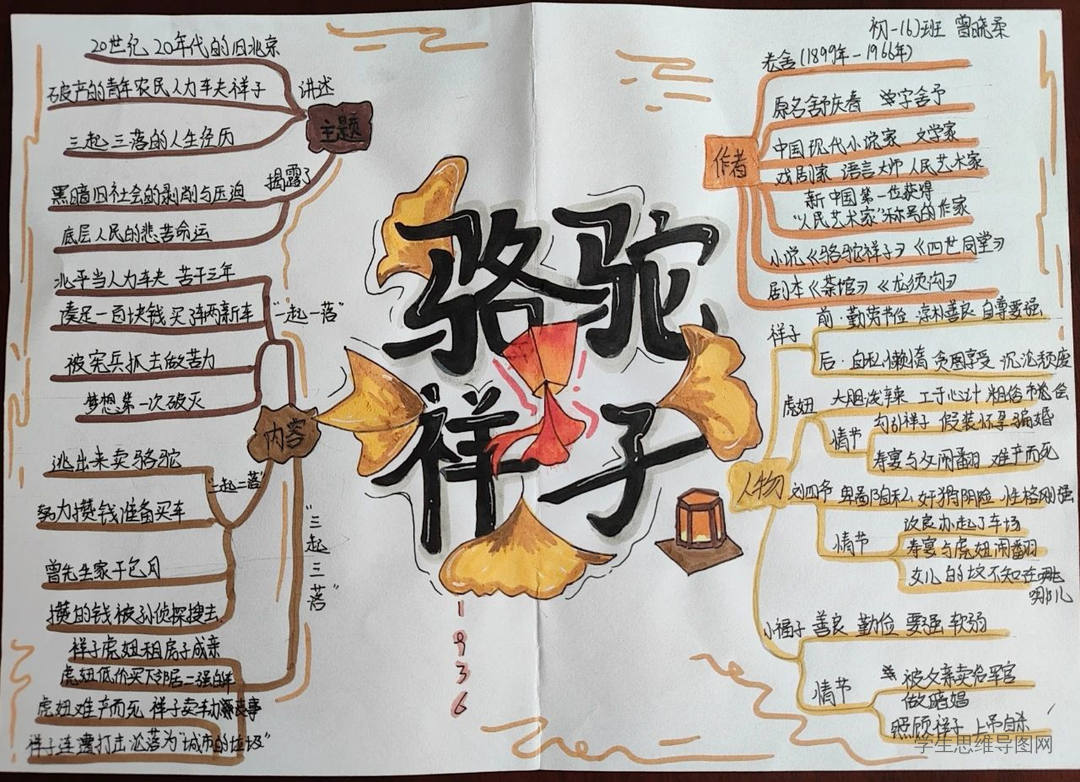 20世纪 20年代的旧北京
破产的青年农民人力车夫祥子
讲述
主题
三起三落的人生经历
揭露了
黑暗旧社会的剥削与压迫
底层人民的悲苦命运
北平当人力车夫 苦干三年
凑足一百块钱 买了辆新车
"一起一落"
被宪兵抓去做苦力
梦想第一次破灭
内容
逃出来卖骆驼
"二起二落"
努力攒钱准备买车
曾先生家干包月
攒的钱被孙侦探搜去
"三起三落"
祥子虎妞租房子成亲
虎妞低价买下邻居二强的车
虎妞难产而死 祥子卖车办丧事
祥子连遭打击 沦落为"城市的垃圾"
骆驼
祥子
1936
初一(6)班 曾晓柔
作者
老舍(1899年-1966年)
原名舒庆春 字舍予
中国现代小说家 文学家
戏剧家 语言大师 人民艺术家
新中国第一位获得
"人民艺术家"称号的作家
小说《骆驼祥子》《四世同堂》
剧本《茶馆》《龙须沟》
人物
祥子
前:勤劳节俭 淳朴善良 自尊要强
后:自私懒惰 贪图享受 沉沦颓废
虎妞 大胆泼辣 工于心计 粗俗
情节
勾引祥子 假装怀孕骗婚
寿宴与父闹翻 难产而死
刘四爷 卑鄙自私 奸猾阴险 性格刚强
情节
改良办起了车场
寿宴与虎妞闹翻
女儿的坟不知在哪
哪儿
小福子 善良 勤俭 要强 软弱
情节
被父亲卖给军官
做暗娼
照顾祥子 上吊自杀
学生思维导图网